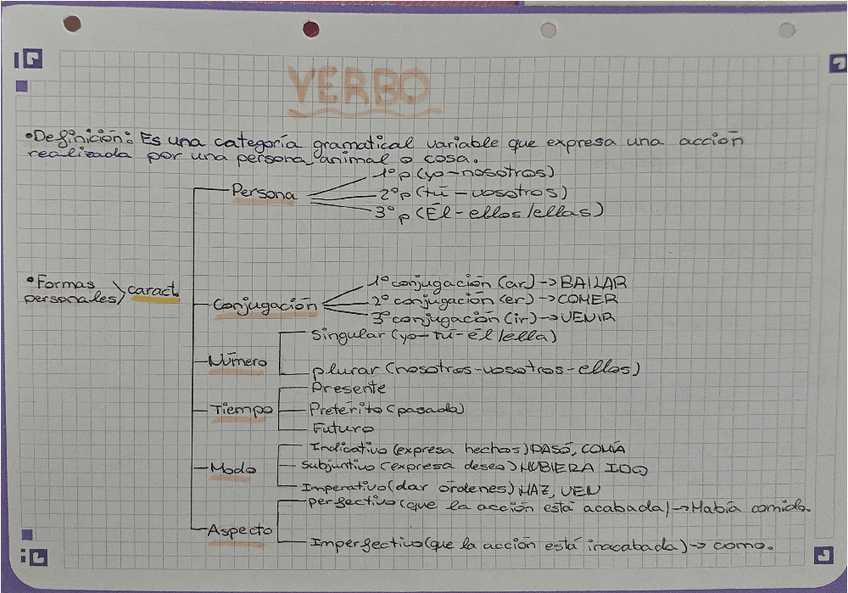 VERBO
•Definición: Es una categoría gramatical variable que expresa una acción
realizada por una persona, animal o cosa.
Persona
1º p (yo-nosotros)
2º p (tú-vosotros)
3º p (Él-ellos/ellas)
•Formas
personales
caract.
Conjugación
1º conjugación (ar)->BAILAR
2º conjugación (er)->COMER
3º conjugación (ir)->VENIR
Número
Singular (yo-tú-él/ella)
plurar (nosotros-vosotros-ellos)
Tiempo
Presente
Pretérito (pasado)
Futuro
Modo
Indicativo (expresa hechos) PASÓ, COMÍA
Subjuntivo (expresa deseo) HUBIERA IDO
Imperativo (dar órdenes) HAZ, VEN
Aspecto
perfectivo (que la acción está acabada)->Había comido.
Imperfectivo (que la acción está inacabada)-> como.